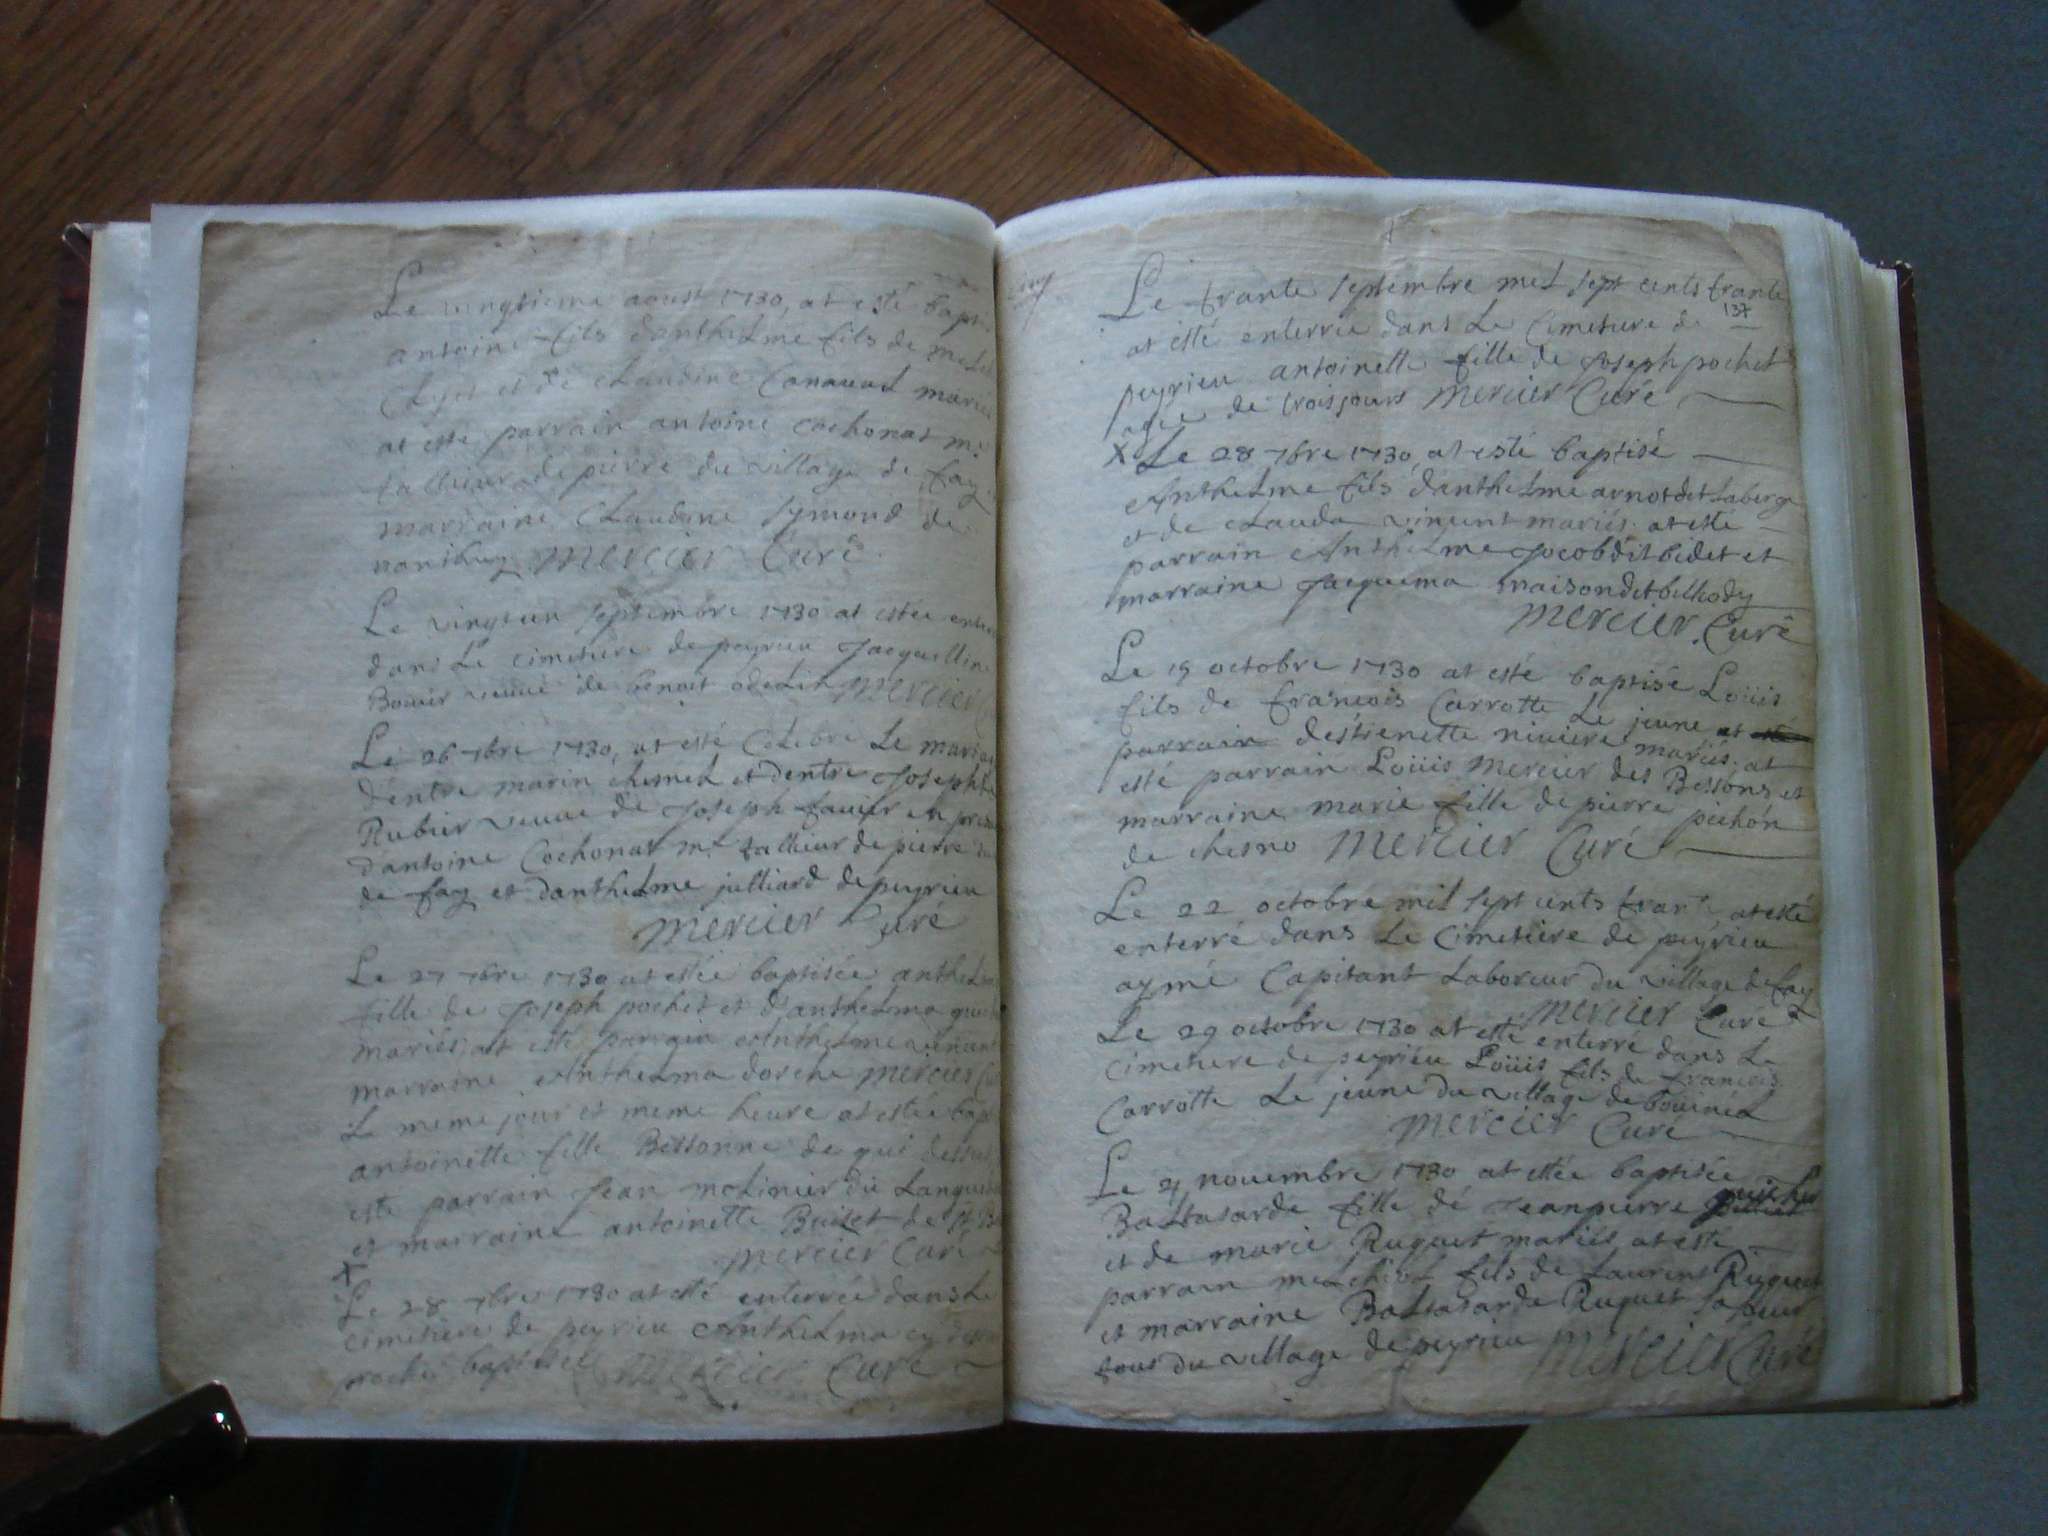 Le vingtieme aoust 1730, at esté bapti
antoine fils danthelme fils de
et de claudine Canaval mariés
at esté parrain antoine cochonat me
tallieur de pierre du village de fay
marraine Claudine Symond de
mercier Curé
Le vingtun septembre 1730 at estée enter
dans Le cimetiere de peyrieu Jacquelline
Bouvier veuve de benoit odelin mercier
Le 26 7bre 1730, at esté Celebre Le maria
d'entre marin chemel et dentre Joseph
Rubier veuve de Joseph favier en prese
dantoine Cochonat me tallieur de pierre
de fay et danthelme julliard de peyrieu
mercier Curé
Le 27 7bre 1730 at estée baptisée anthel
fille de Joseph pochet et d'anthelma
mariés, at esté parrain Anthelme vincent
marraine Anthelma dorche mercier
Le meme jour et meme heure at estée bap
antoinette fille Bessonne de qui dessus
esté parrain Jean molinier du Langue
et marraine antoinette de St
mercier Curé
x
Le 28 7bre 1730 at esté enterrée dans Le
cimetiere de peyrieu Anthelma cy
baptisée mercier Curé
Le trante septembre mil sept cents trante
137
at esté enterrée dans Le Cimetiere de
peyrieu antoinette fille de Joseph pochet
agée de trois jours mercier Curé
x Le 28 7bre 1730, at esté baptisé
Anthelme fils danthelme arnot dit Laberge
et de clauda vincent mariés at esté
parrain Anthelme Jocob dit bidet et
marraine Jacquema maison dit bellody
mercier Curé
Le 19 octobre 1730 at esté baptisé Loüis
fils de francois Carrotte Le jeune at esté
parrain destienette niviere mariés at
esté parrain Loüis mercier des Bessons et
marraine marie fille de pierre pichon
de chesno mercier Curé
Le 22 octobre mil sept cents trante at esté
enterré dans Le Cimetiere de peyrieu
aymé Capitant Laboreur du village de fay
mercier Curé
Le 29 octobre 1730 at esté enterré dans Le
cimetiere de peyrieu Loüis fils de francois
Carrotte Le jeune du village de bovinel
mercier Curé
Le 21 novembre 1730 at estée baptisée
Baltasarde fille de Jean pierre
et de marie Ruquet mariés at esté
parrain melchiol fils de Laurent Ruquet
et marraine Baltasarde Ruquet sa seur
tous du village de peyrieu mercier Curé